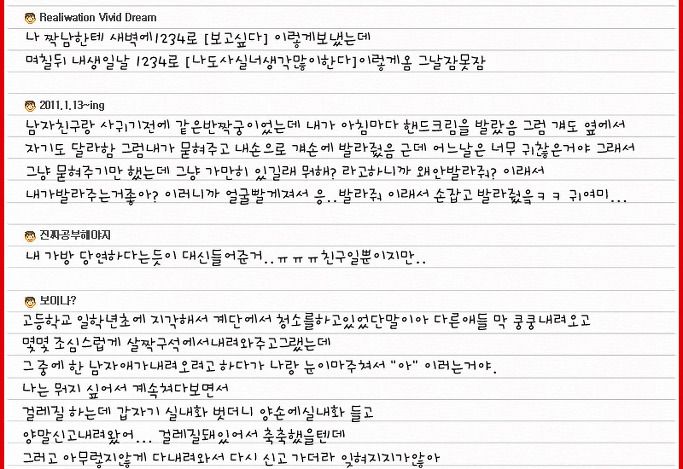 Realiwation Vivid Dream
나 짝남한테 새벽에1234로 [보고싶다] 이렇게보냈는데
며칠뒤 내생일날 1234로 [나도사실너생각많이한다]이렇게옴 그날잠못잠
2011.1.13~ing
남자친구랑 사귀기전에 같은반짝궁이었는데 내가 아침마다 핸드크림을 발랐음 그럼 걔도 옆에서
자기도 달라함 그럼내가 묻혀주고 내손으로 걔손에 발라줬음 근데 어느날은 너무 귀찮은거야 그래서
그냥 묻혀주기만 했는데 그냥 가만히 있길래 뭐해? 라고하니까 왜안발라줘? 이래서
내가발라주는거좋아? 이러니까 얼굴빨게져서 응..발라줘 이래서 손잡고 발라줬음ㅋㅋ 귀여미...
진짜공부해야지
내 가방 당연하다는듯이 대신들어준거..ㅠㅠㅠ친구일뿐이지만..
보이나?
고등학교 일학년초에 지각해서 계단에서 청소를하고있었단말이야 다른애들 막 쿵쿵내려오고
몇몇 조심스럽게 살짝구석에서내려와주고그랬는데
그 중에 한 남자애가내려오려고 하다가 나랑 눈이마주쳐서 "아" 이러는거야.
나는 뭐지 싶어서 계속쳐다보면서
걸레질 하는데 갑자기 실내화 벗더니 양손에실내화 들고
양말신고내려왔어... 걸레질돼있어서 축축했을텐데
그러고 아무렇지않게 다내려와서 다시 신고 가더라 잊혀지지가않아